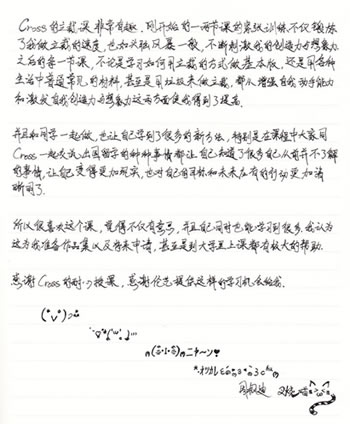 Cross的立裁课非常有趣，刚开始的一两节课的紧张训练不仅锻炼
了我做立裁的速度，也如头脑风暴一般，不断刺激我的创造力与想象力
之后的每一节课，不论是学习如何用立裁的方式做基本版，还是用各种
生活中普通常见的材料，甚至是用垃圾来做立裁，都从增强自我动手能力
和激发自我创造力与想象力这两方面使我得到了提高。
并且和同学一起做，也让自己学到了很多的新方法，特别是在课程中大家同
Cross一起交流出国留学的种种事情都让自己知道了很多自己从前并不了解
的事情，让自己变得更加现实，也对自己的目标和未来应有的行动更加清
晰明了。
所以很喜欢这个课，觉得不仅有意思，并且同时也能学习到很多，我认为
这为我准备作品集以及将来申请，甚至是到大学里上课都有较大的帮助。
感谢Cross的耐心授课，感谢 提供这样的学习机会给我。